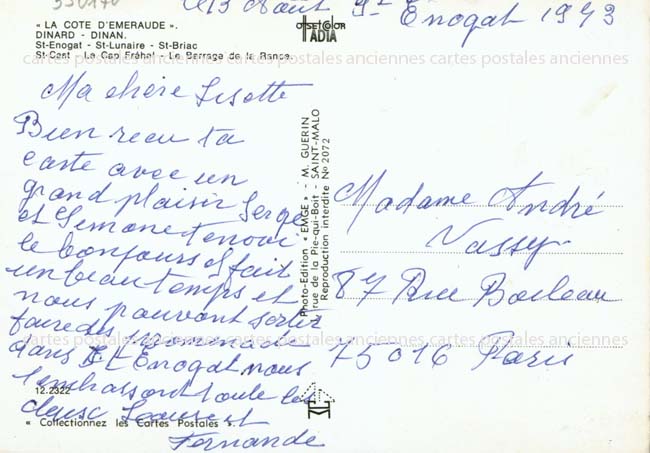 330170
le 13 Août St Enogat 1973
« LA COTE D'EMERAUDE ».
DINARD - DINAN.
St-Enogat - St-Lunaire - St-Briac
St-Cast - Le Cap Fréhel - Le Barrage de la Rance.
OFFSETCOLOR
IADIA
cartes postales anciennes cartes postales anciennes cartes postales anciennes
Ma chère Lisette
Bien recu ta
carte avec un
grand plaisir Serge
et Simone tenvoi
le bonjours il fait
un beau temps et
nous pouvont sortir
faire des
dans St Enogat nous
t'embrassont toute les
deux Laure et
Fernande
12.2322
« Collectionnez les Cartes Postales ».
Photo-Edition « EMGE » - M. GUERIN
rue de la Pie-qui-Boit - SAINT-MALO
Reproduction interdite № 2072
Madame André
Vassy
87 Rue Boileau
75016 Paris
cartes postales anciennes cartes postales anciennes cartes postales anciennes